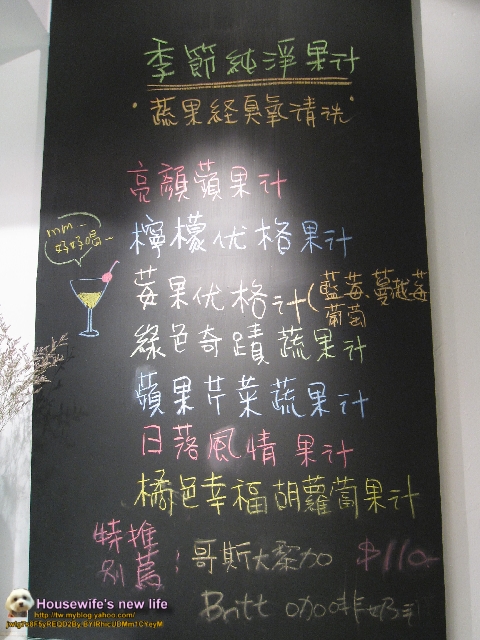 季節純淨果汁
"蔬果経臭氧清洗"
亮顏蘋果汁
mm
好好喝~
檸檬优格果汁
莓果优格汁(藍莓、蔓越莓
葡萄
綠色奇蹟蔬果汁
蘋果芹菜蔬果汁
日落風情果汁
橘色幸福胡蘿蔔果汁
特別推薦!哥斯大黎加 $110
Britt 咖啡奶
Housewife's new life
http://tw.myblog.yahoo.com/